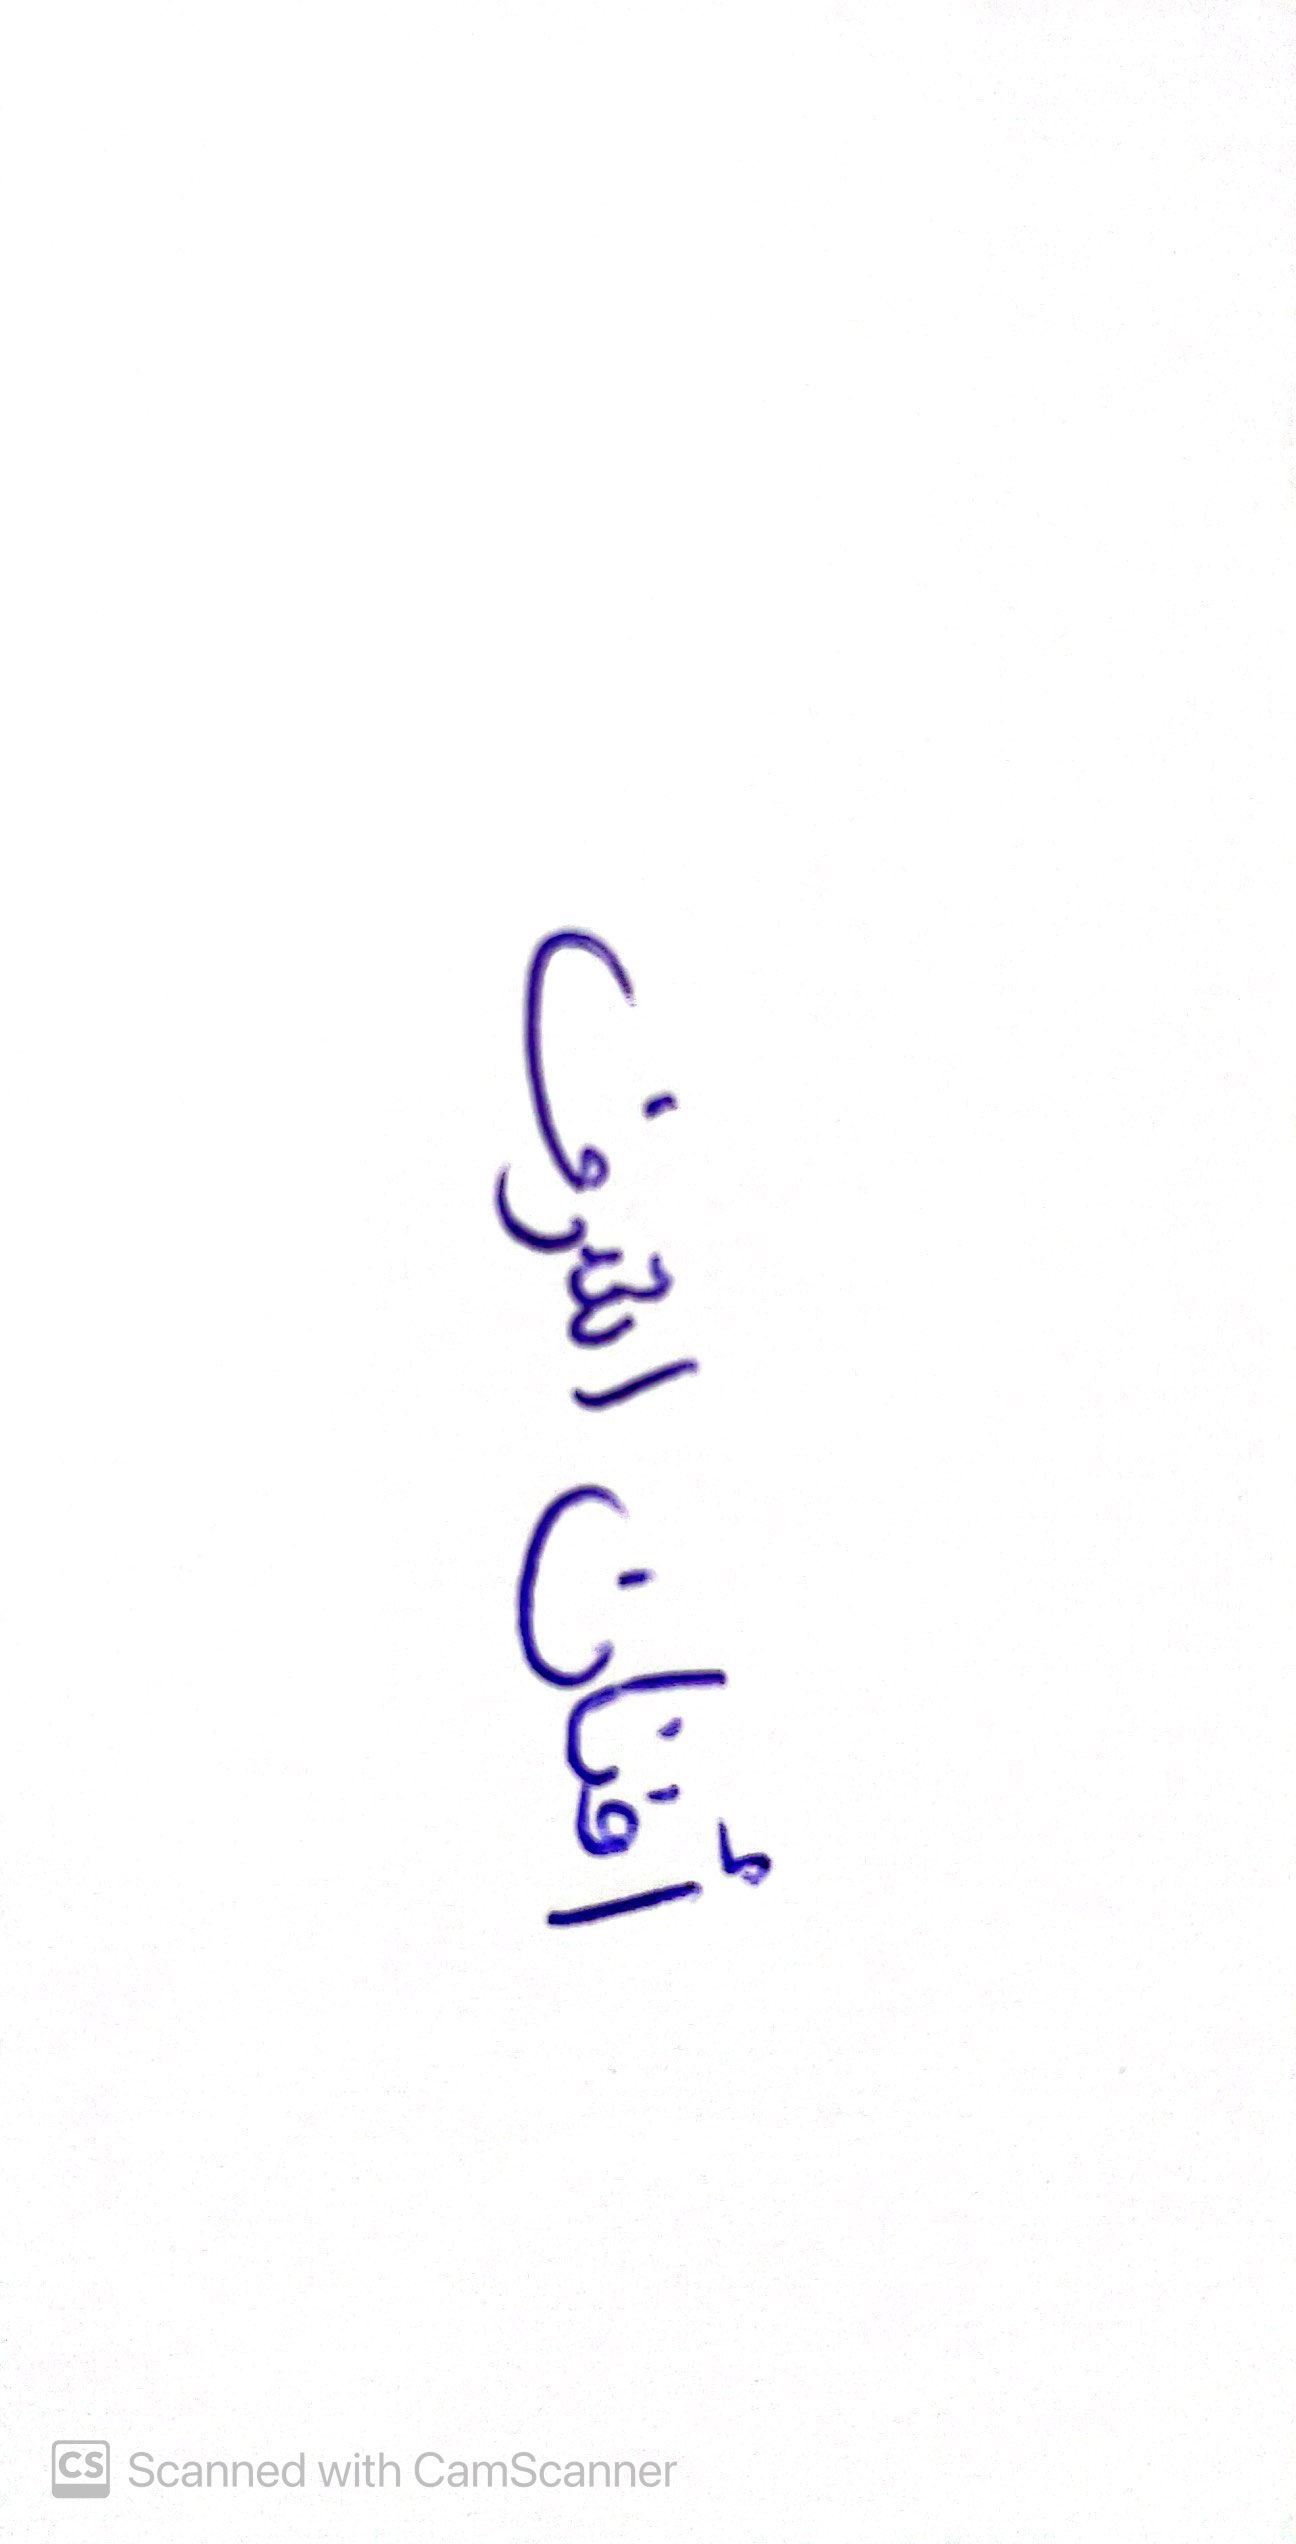 أفنان اشرف
Scanned with CamScanner
CS